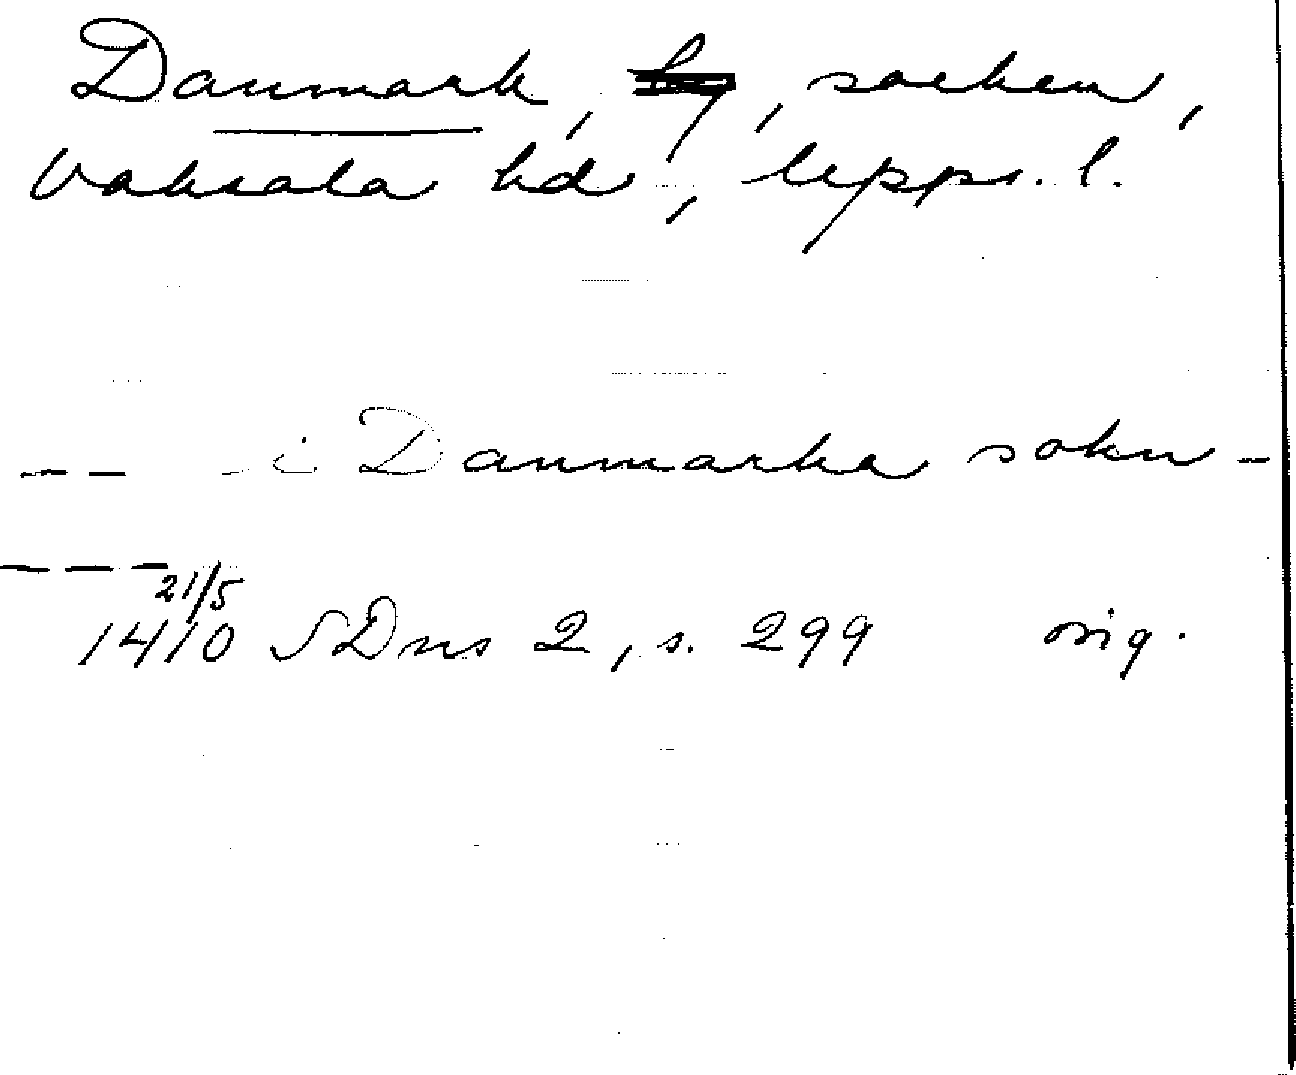 Danmark, by, socken,
Vaksala hd, Upps. l.
-- - i Danmarka sokn -
---
21/5
1410 SDns 2, s. 299 orig.